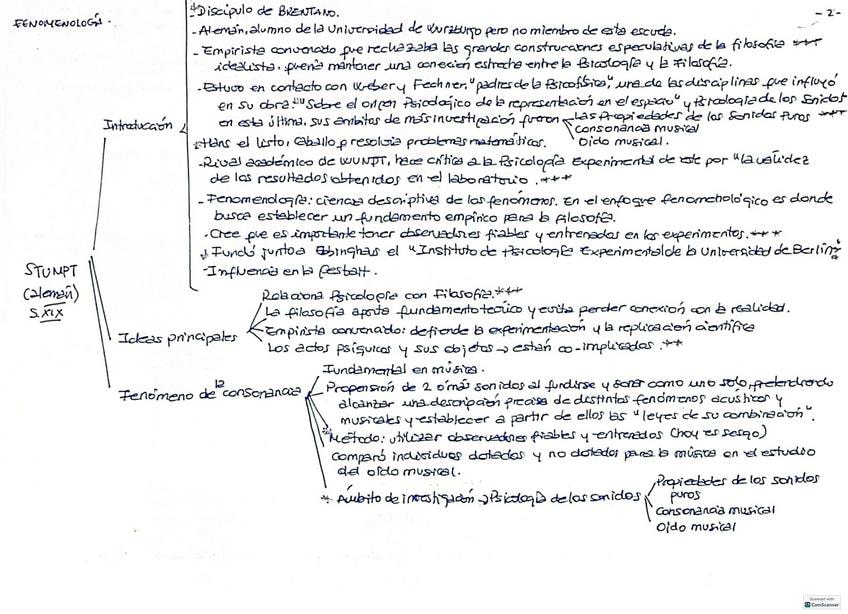 FENOMENOLOGÍA.
- 2 -
*Discípulo de BRENTANO.
- Alemán, alumno de la Universidad de Wurzburgo pero no miembro de esta escuela.
- Empirista convencido que rechazaba las grandes construcciones especulativas de la filosofía ***
idealista. quería mantener una conexión estrecha entre la Psicología y la Filosofía.
- Estuvo en contacto con Weber y Fechner, "padres de la Psicofísica", una de las disciplinas que influyó
en su obra "Sobre el origen Psicológico de la representación en el espacio" y Psicología de los Sonidos
en esta última, sus ámbitos de más investigación fueron
Las Propiedades de los Sonidos Puros ***
Consonancia musical
Oído musical.
Introducción
*Hans el listo, caballo q resolvía problemas matemáticos.
- Rival académico de WUNPT, hace crítica a la Psicología Experimental de este por "la validez
de los resultados obtenidos en el laboratorio. ***
- Fenomenología: ciencia descriptiva de los fenómenos. En el enfoque fenomenológico es donde
busca establecer un fundamento empírico para la filosofía.
- Cree que es importante tener observadores fiables y entrenados en los experimentos. ***
* Fundó junto a Ebinghaus el "Instituto de Psicología Experimental de la Universidad de Berlín"
- Influencia en la Gestalt.
STUMPT
(alemán)
S. XIX
Ideas principales
Relaciona Psicología con Filosofía. ***
La filosofía aporta fundamento teórico y evita perder conexión con la realidad.
Empirista convencido: defiende la experimentación y la replicación científica
Los actos psíquicos y sus objetos → están co-implicados. **
Fenómeno de la consonancia
Fundamental en música.
Propensión de 2 ó más sonidos al fundirse y sonar como uno solo, pretendiendo
alcanzar una descripción precisa de distintos fenómenos acústicos y
musicales y establecer a partir de ellos las "leyes de su combinación".
*Método: utilizar observadores fiables y entrenados (hoy es sesgo)
comparó individuos dotados y no dotados para la música en el estudio
del oído musical.
* Ámbito de investigación → Psicología de los sonidos
Propiedades de los sonidos
puros
Consonancia musical
Oído musical
Scanned with
CamScanner